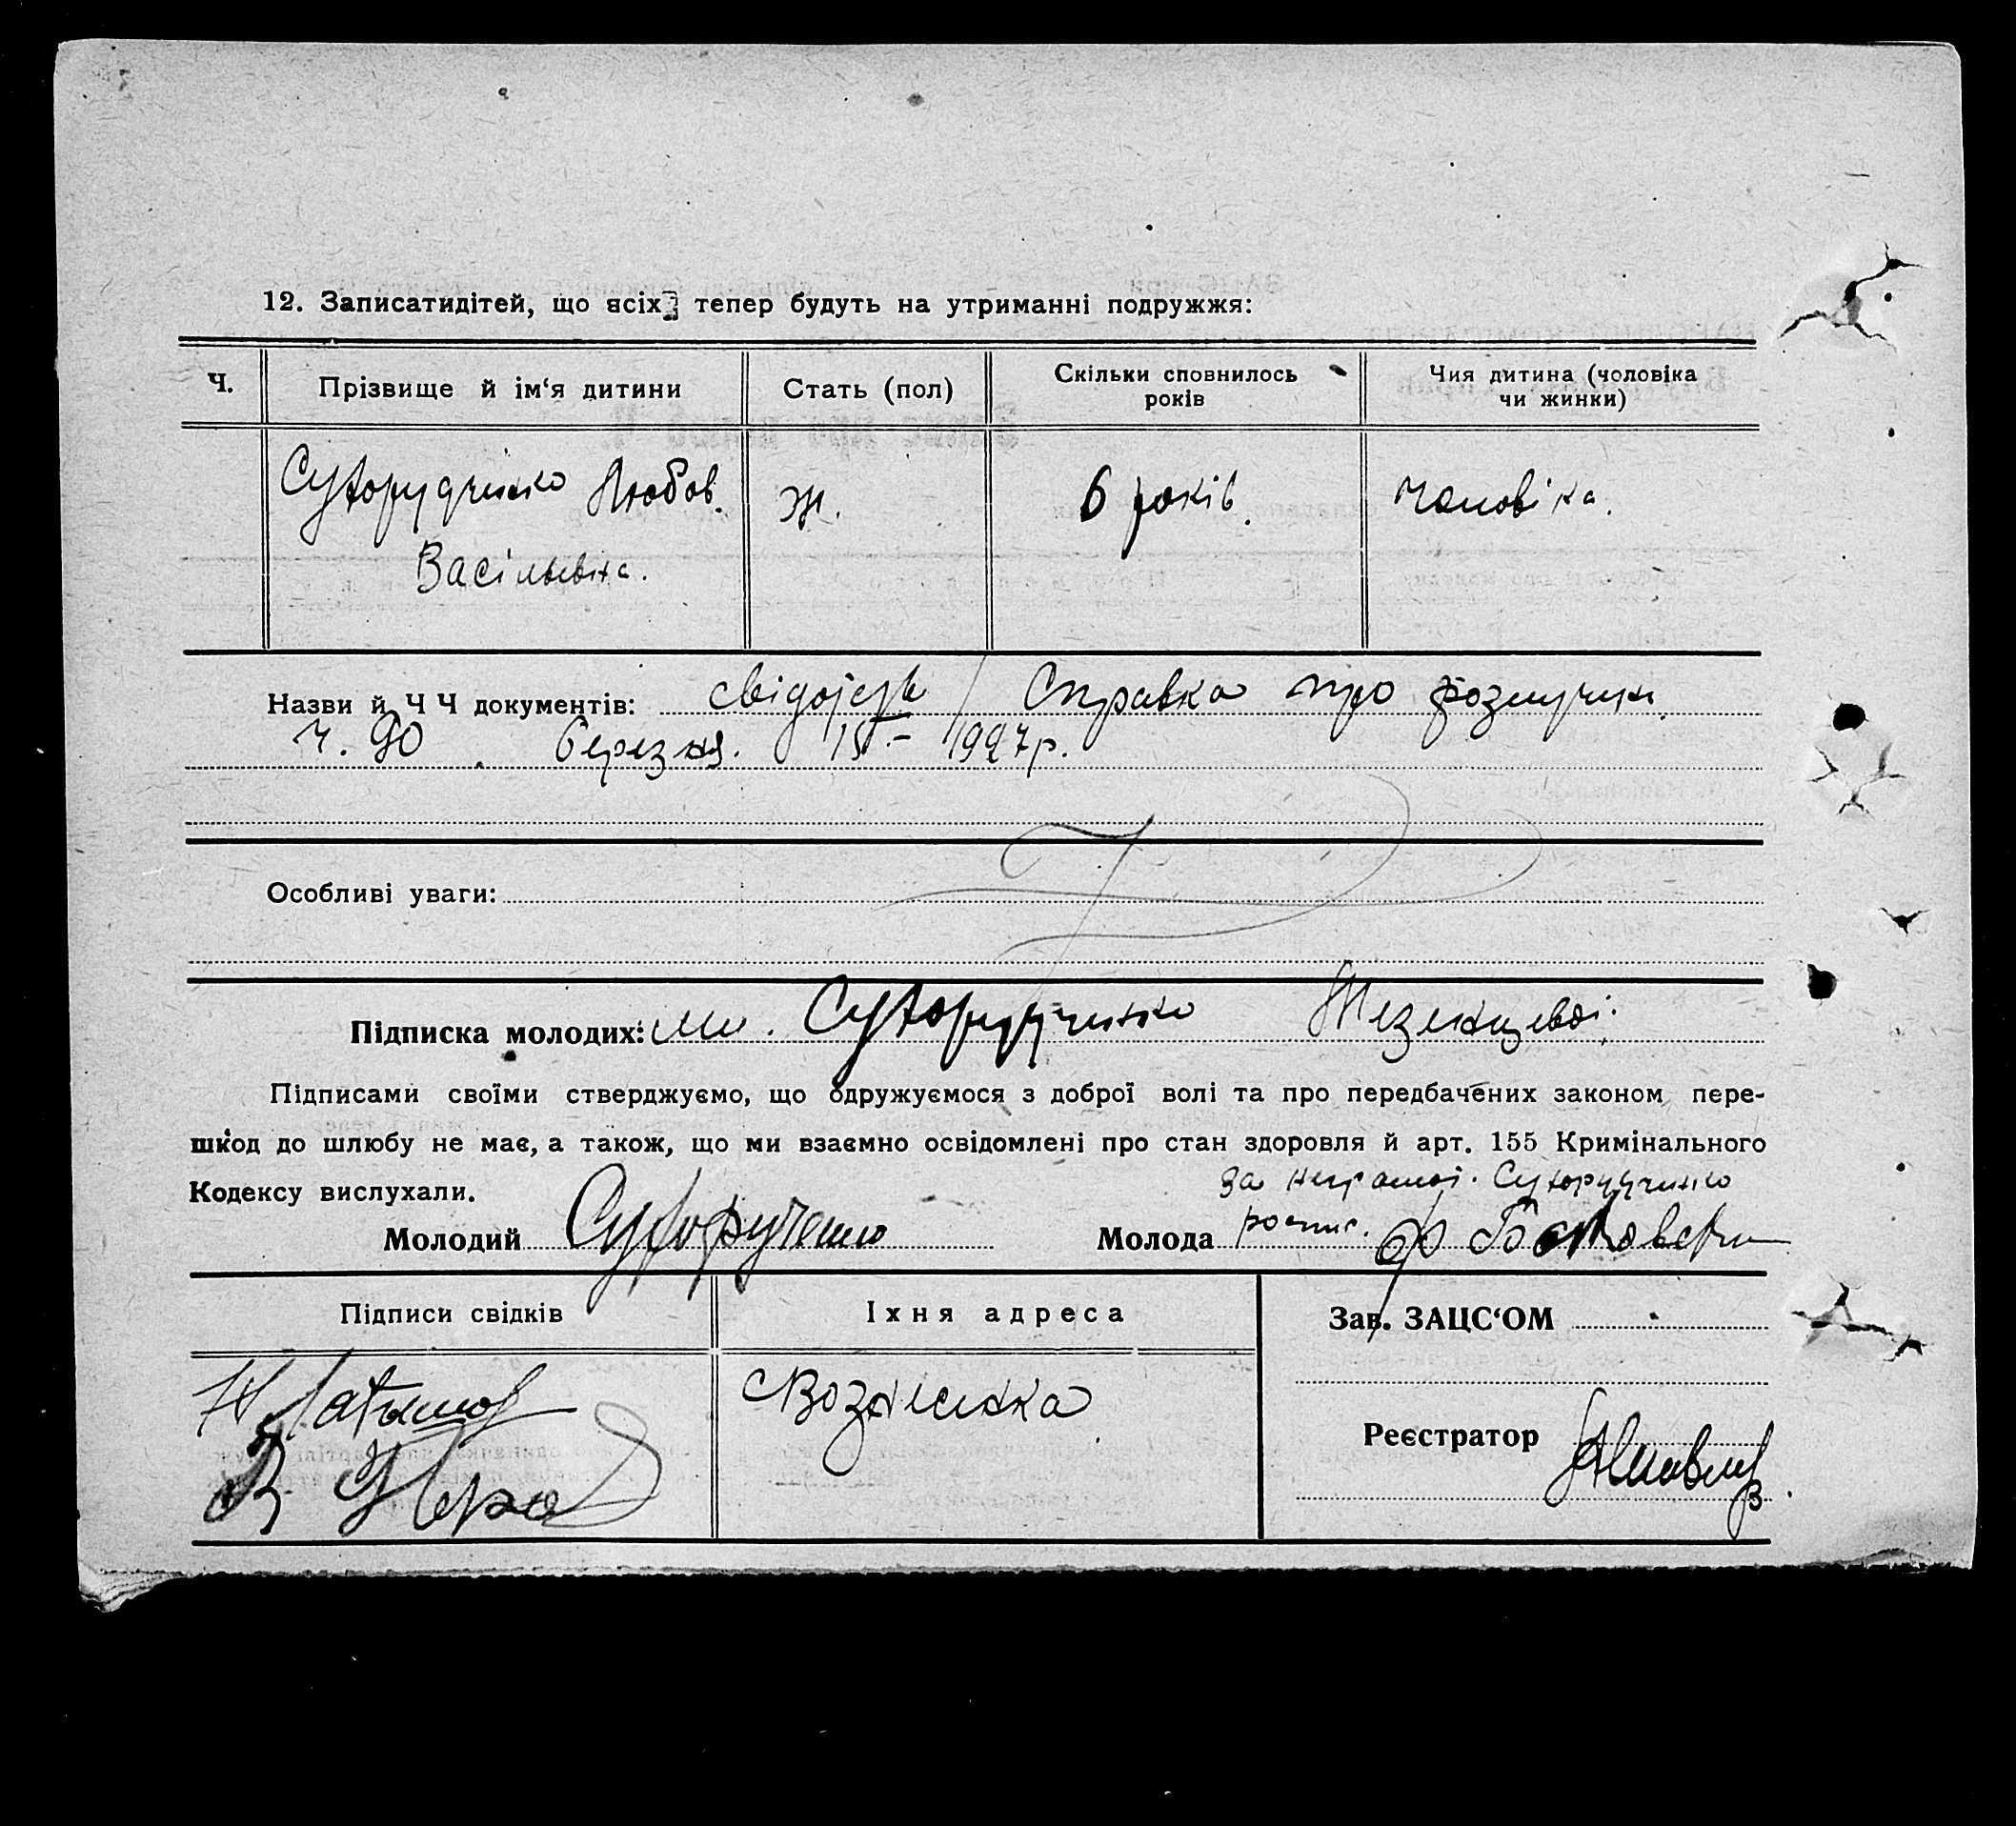 12. Записатидітей, що всіх тепер будуть на утриманні подружжя:
Ч. Прізвище й ім‘я дитини Стать (пол) Скільки сповнилось років Чия дитина (чоловіка чи жинки)
Сухоручченко Любов. ж. 6 років. чоловіка.
Васільевна.
Назви й Ч Ч документів: Справка про розлучен.
ч. 90 березня. 15.- 1927р.
Особливі уваги:
Підписка молодих: ми. Сухоручченко
Підписами своїми стверджуємо, що одружуємося з доброї волі та про передбачених законом пере-
шкод до шлюбу не має, а також, що ми взаємно освідомлені про стан здоровля й арт. 155 Кримінального
Кодексу вислухали.
за Сухоручченко
Молодий Сухорученко Молода роспис.
Підписи свідків Їхня адреса Зав. ЗАЦС‘ОМ
Вознесенка
Реєстратор